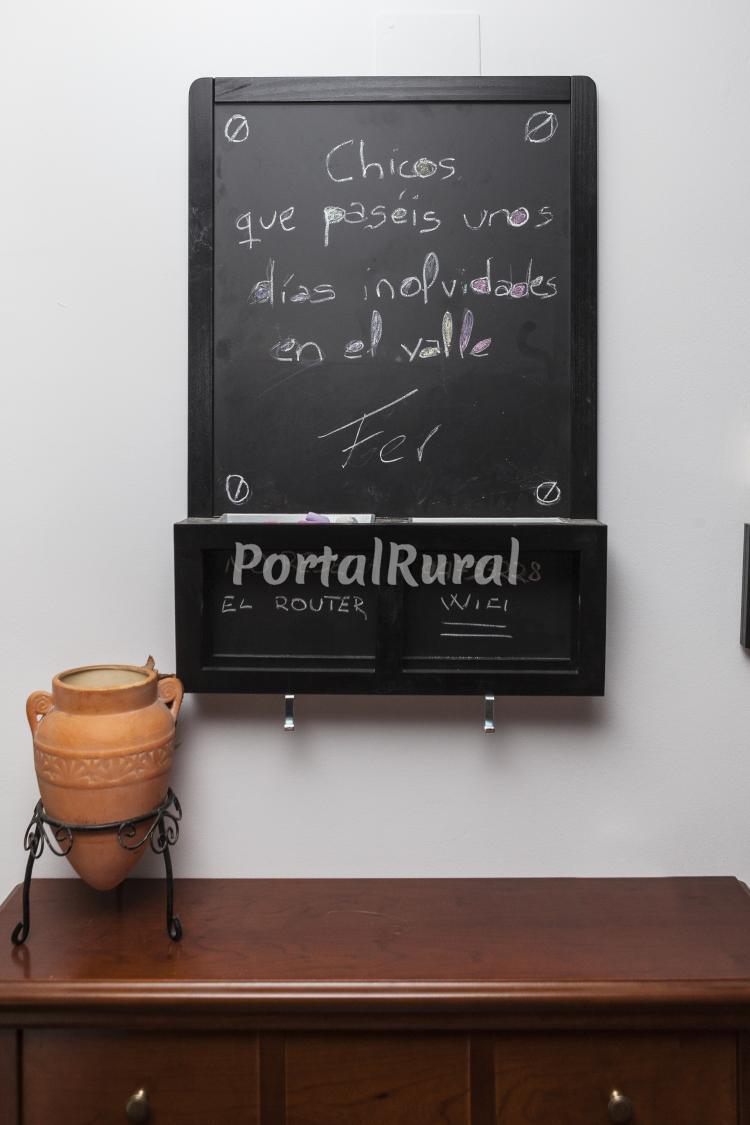 Chicos
que paséis unos
días inolvidades
en el valle
Fer
PortalRural
EL ROUTER
WIFI